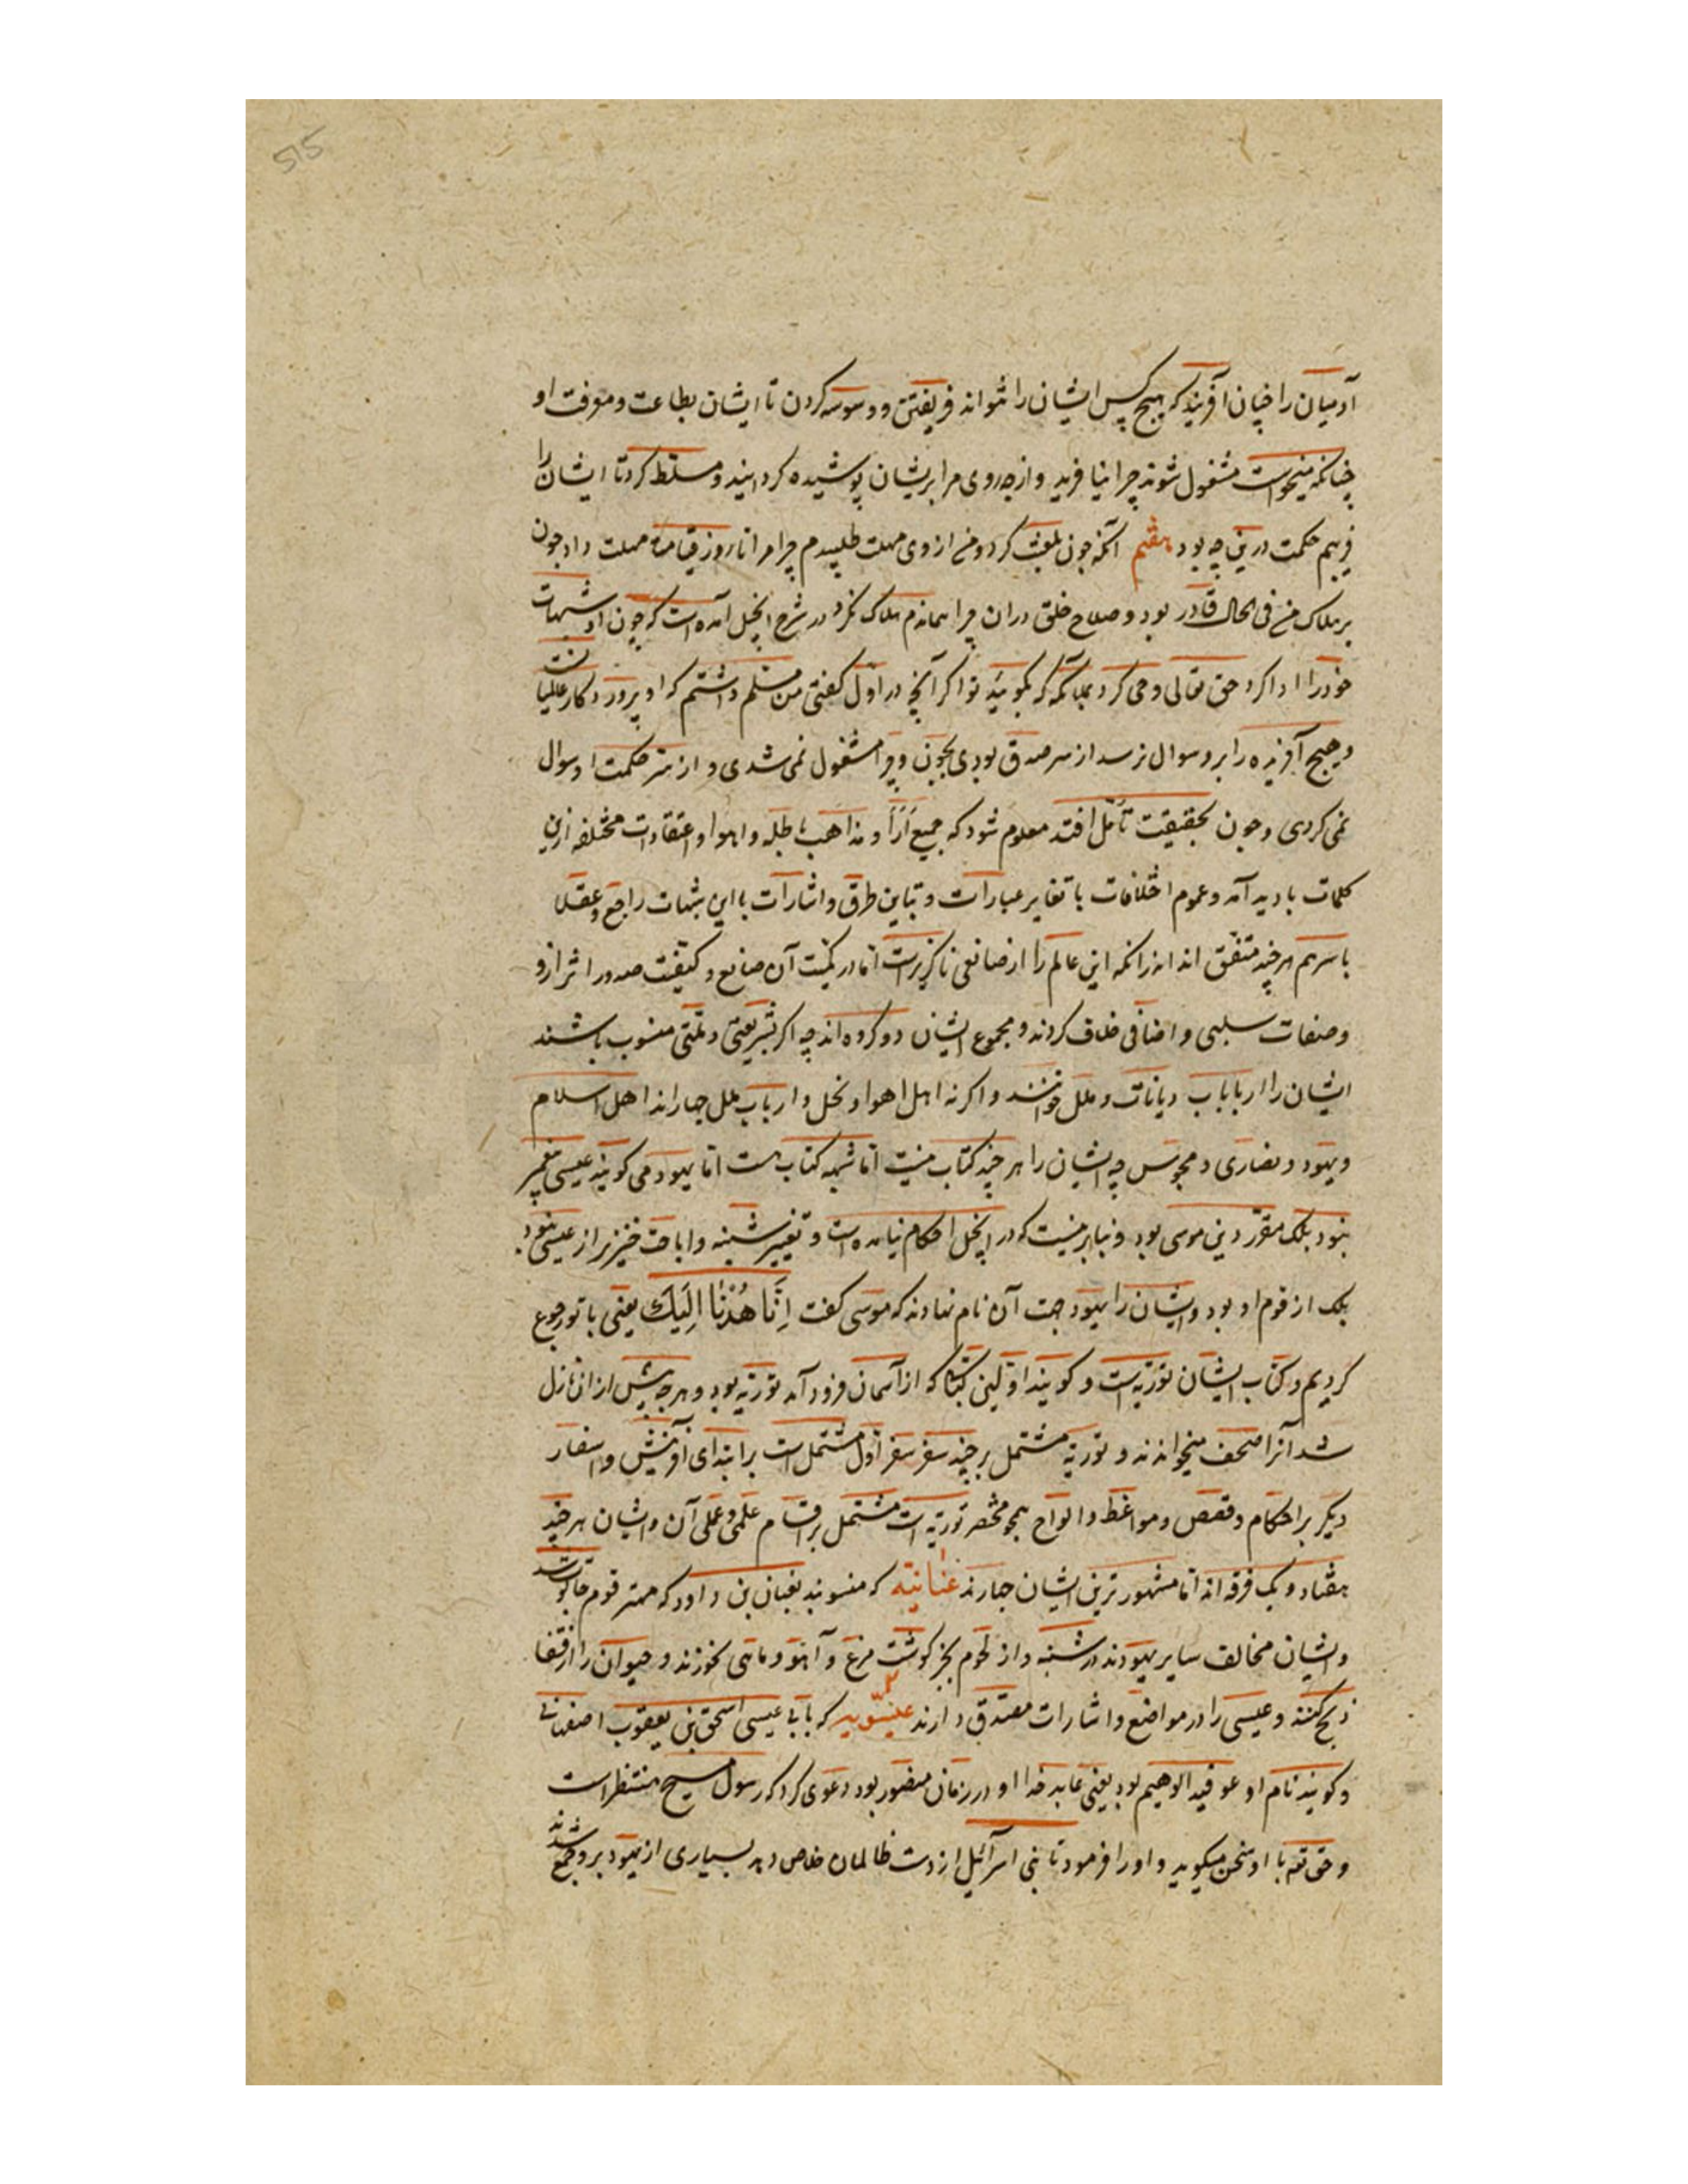 515
آدمیان را چنان آفریند که هیچ کس ایشان را نتواند فریفتن و وسوسه کردن تا ایشان بطاعت و معرفت او
چنانکه میخواست مشغول شوند چرا نیافرید و از چه روی مرا بریشان پوشیده گردانید و مسلط کرد تا ایشان را
فریبم حکمت درین چه بود هفتم آنکه چون بلعنت کرد و من از وی مهلت طلبیدم چرا مرا تا روز قیامة مهلت داد چون
بر هلاک من فی الحال قادر بود و صلاح خلق دران چرا همانم هلاک نکرد در شرح انجیل آمده است که چون او شبهات
خود را ادا کرد حق تعالی وحی کرد بملائکه که بگویید تو اگر آنچه در اول گفتی من مسلم داشتم که او پروردگار عالمیان است
و هیچ آفریده را برو سوال نرسد از سر صدق بودی بچون و چرا مشغول نمی شدی و از سر حکمت او سوال
نمی کردی و چون بحقیقت تأمل افتد معلوم شود که جمیع آرا و مذاهب باطله و اهوا و اعتقادات مختلفه ازین
کلمات بادید آمد و عموم اختلافات با تغایر عبارات و تباین طرق و اشارات با این شبهات راجع و عقلا
باسرهم هر چند متفق اند از انکه این عالم را از صانعی ناگزیرست اما در کمیت آن صانع و کیفیت صدور اثر ازو
و صفات سلبی و اضافی خلاف کردند و مجموع ایشان دو گروه اند چه اگر بشریعتی و ملتی منسوب باشند
ایشان را ارباباب دیانات و ملل خوانند و اگر نه اهل اهوا و نحل و ارباب ملل چهاراند اهل اسلام
و یهود و نصاری و مجوس چه ایشان را هر چند کتاب نیست اما شبهه کتاب هست اما یهود می گویند عیسی پیغمبر
نبود بلک مقرر دین موسی بود و بنابر نیست که در انجیل احکام نیامده است و تغییر شنبه و اباحت خنزیر از عیسی نبود
بلک از قوم او بود و ایشان را یهود جهت آن نام نهادند که موسی گفت اِنَّا هُدْنَا اِلَیْكَ یعنی با تو رجوع
کردیم و کتاب ایشان توریة است و گویند اولین کتابی که از آسمان فرود آمد توریة بود و هر چه پیش ازان نازل
شد آنرا صحف میخواندند و توریة مشتمل بر چند سفر سفر اول مشتمل است بر ابتدای آفرینش و اسفار
دیگر بر احکام و قصص و مواعظ و الواح همچو مختصر توریة است مشتمل بر اقسام علمی و عملی آن و ایشان هر چند
هفتاد و یک فرقه اند اما مشهورترین ایشان چهارند عنانیه که منسوبند بعنان بن داود که مهتر قوم جالوت
و ایشان مخالف سایر یهودند در شنبه و از لحوم بجز گوشت مرغ و آهو و ماهی نخورند و حیوان را از قفا
ذبح کنند و عیسی را در مواضع و اشارات مصدق دارند عیسویه که بابی عیسی اسحق بن یعقوب اصفهانی
و گویند نام او عوفید الوهیم بود یعنی عابد خدا او در زمان منصور بود دعوی کرد که رسول مسیح منتظر است
و حق تعه با او سخن میگوید و او را فرمود تا بنی اسرآئیل از دست ظالمان خلاص دهد بسیاری از یهود برو جمع شدند